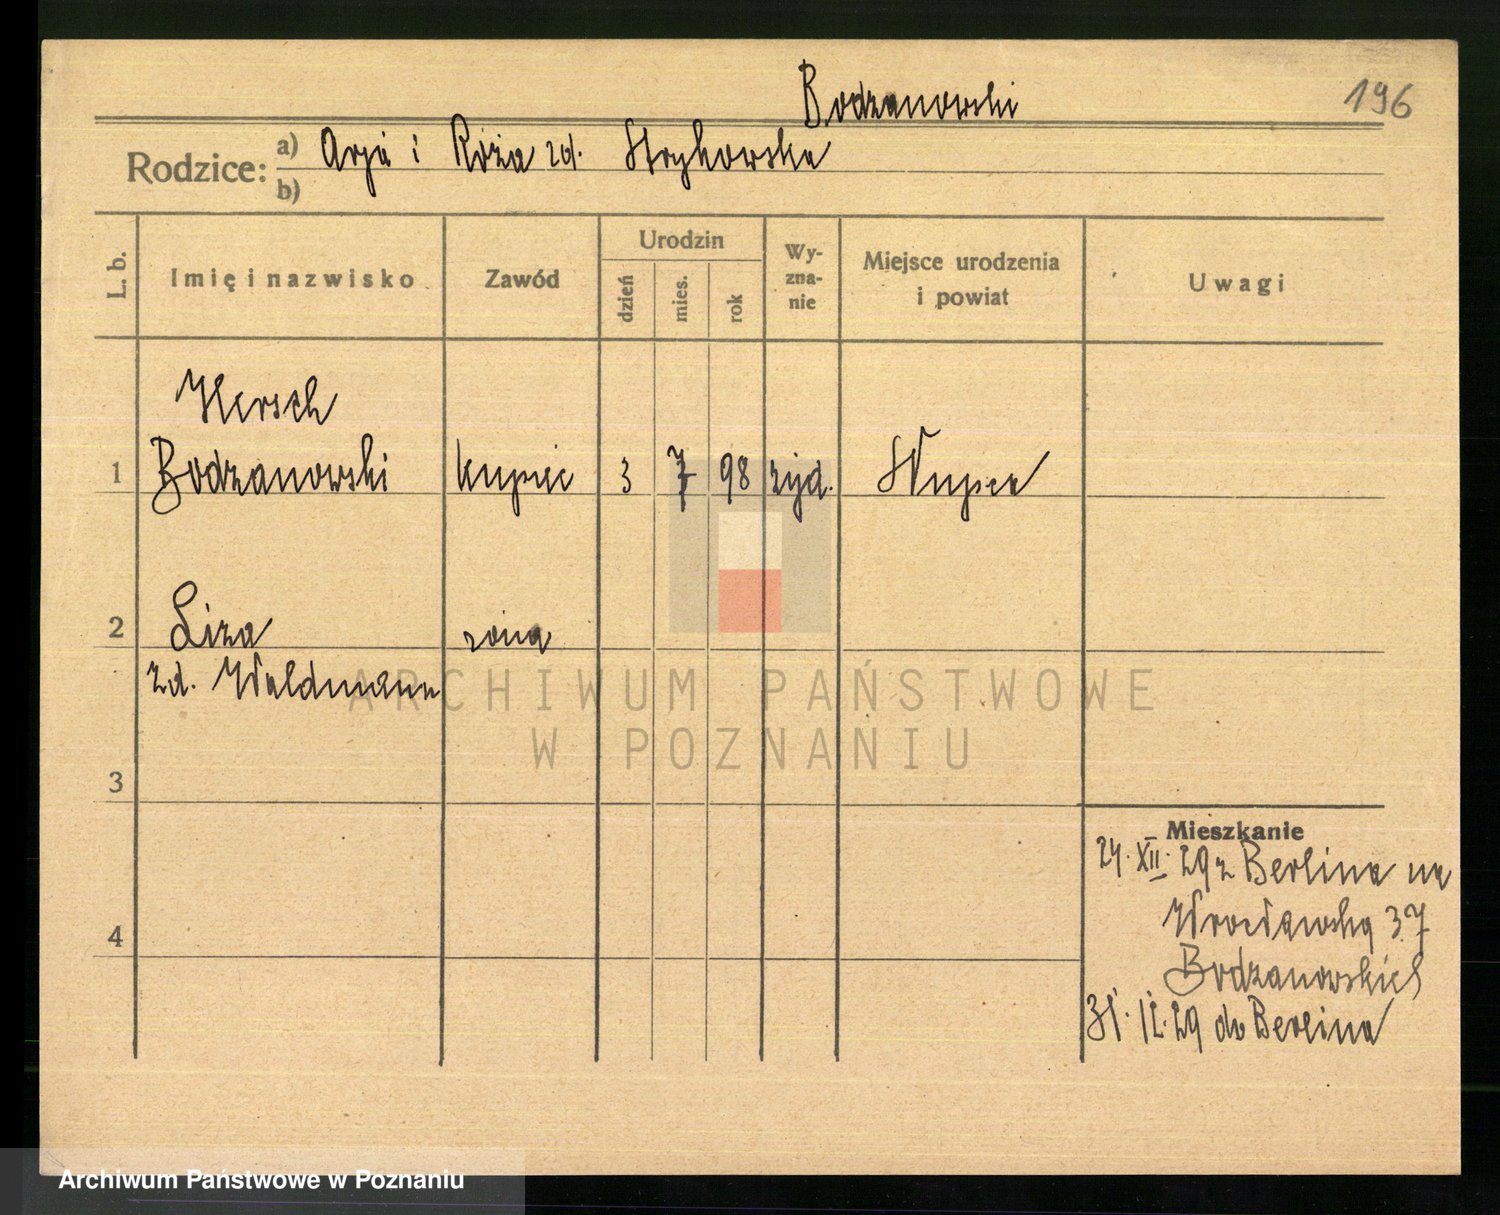 Bodzanowski
196
Rodzice:
a) Arja i Róża zd. Strykowska
b)
L. b.
Imię i nazwisko
Zawód
Urodzin
dzień
mies.
rok
Wy-
zna-
nie
Miejsce urodzenia
i powiat
Uwagi
Hersch
1 Bodzanowski kupiec 3 7 98 żyd. Słupca
2 Liza żona
zd. Waldmann
ARCHIWUM PAŃSTWOWE
W POZNANIU
3
Mieszkanie
24. XII. 29 z Berlina na
Wrocławską 37
4
Bodzanowskich
31. 12. 29 do Berlina
Archiwum Państwowe w Poznaniu